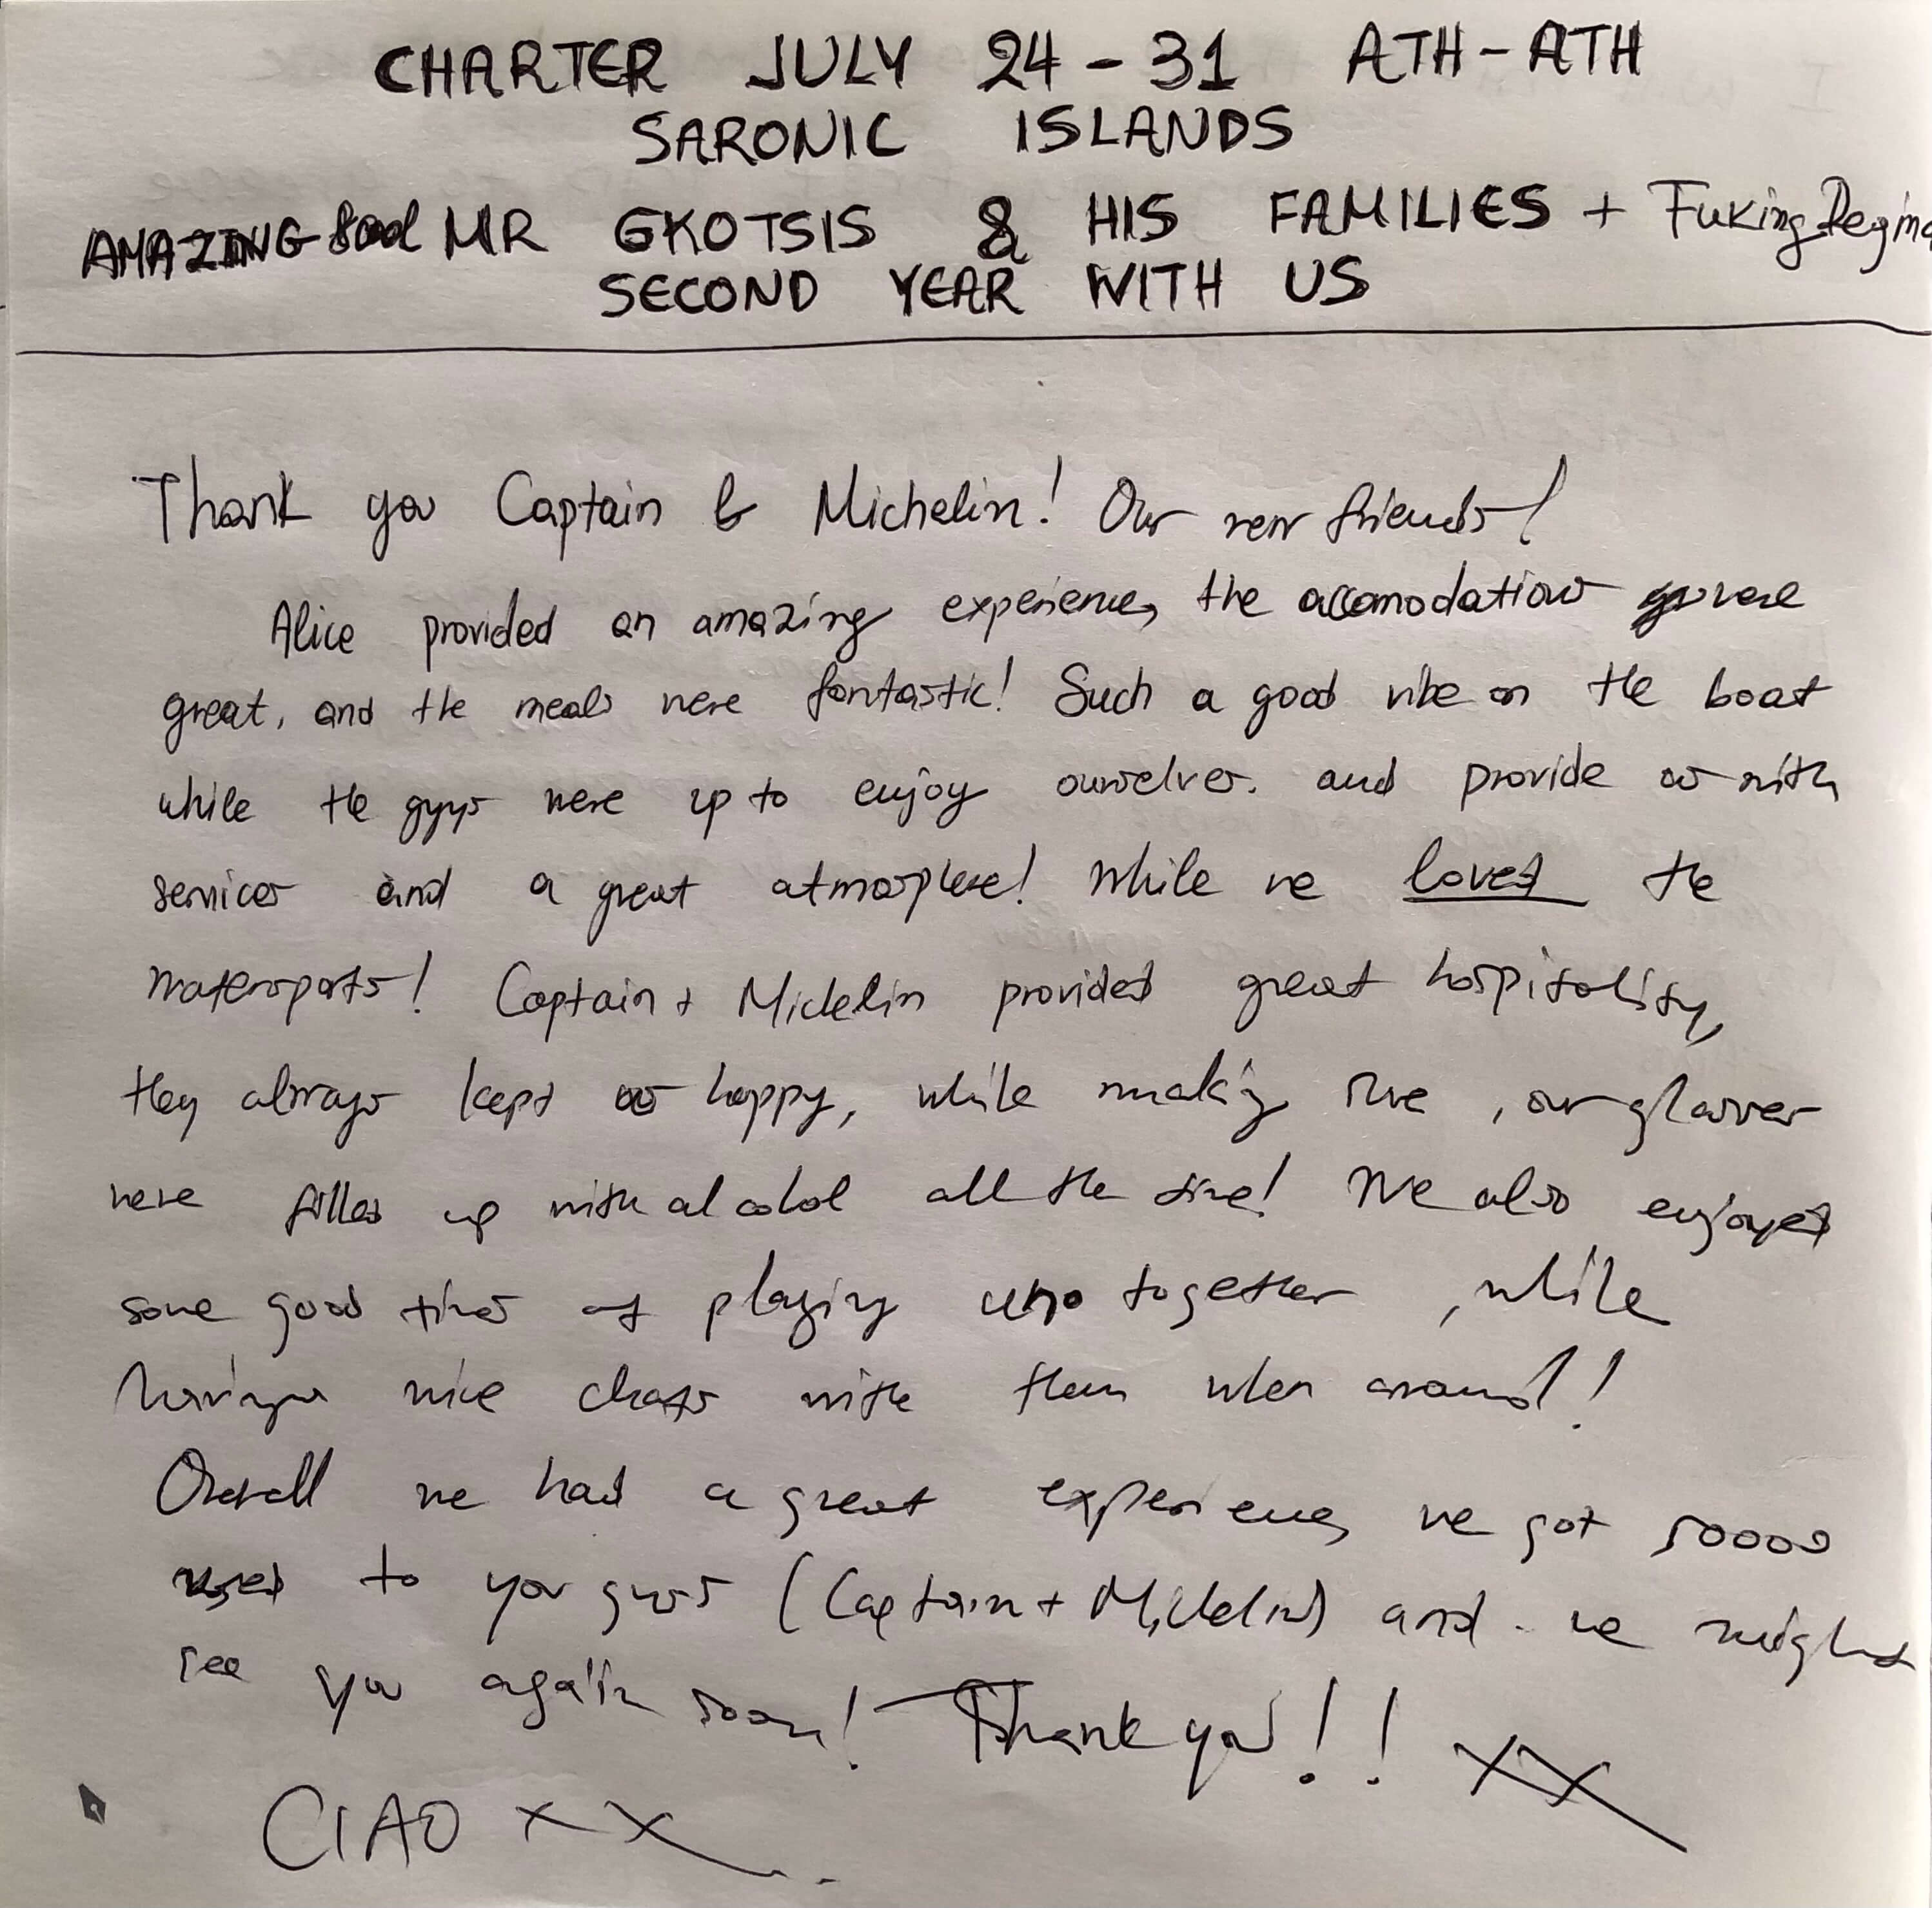 CHARTER JULY 24 - 31 ATH - ATH
SARONIC ISLANDS
AMAZING MR GKOTSIS & HIS FAMILIES + Fuking Regina
SECOND YEAR WITH US
Thank you Captain & Michelin! Our new friends!
Alice provided an amazing experience, the accomodation were
great, and the meals were fantastic! Such a good vibe on the boat
while the guys were up to enjoy ourselves. and provide us with
services and a great atmosphere! While we loved the
watersports! Captain + Michelin provided great hospitality,
they always kept us happy, while making sure, our glasses
were filled up with alcohol all the time! We also enjoyed
some good times of playing uno together, while
having nice chats with them when around!
Overall we had a great experience, we got soooo
used to you guys (Captain + Michelin) and we might
see you again soon! Thank you!! xx
CIAO xx